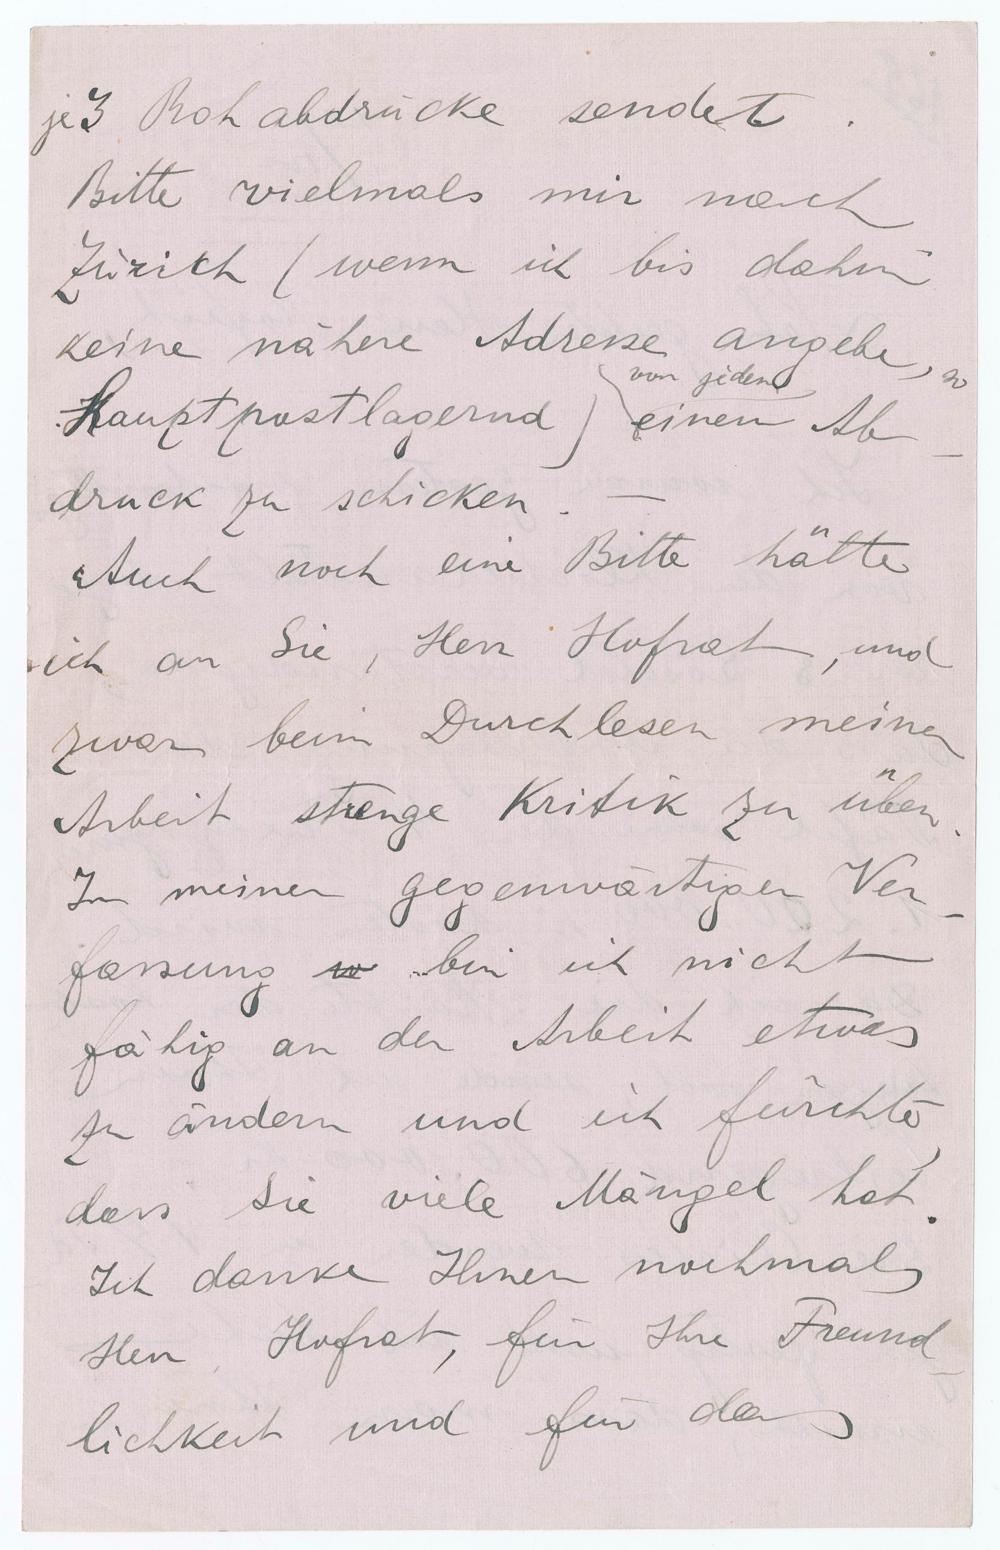 je 3 Rohabdrücke sendet.
Bitte vielmals mir nach
Zürich (wenn ich bis dahin
keine nähere Adresse angebe, so
Hauptpostlagernd) von jedem einen Ab-
druck zu schicken. —
Auch noch eine Bitte hätte
ich an Sie, Herr Hofrat, und
zwar beim Durchlesen meiner
Arbeit strenge Kritik zu üben.
In meiner gegenwärtigen Ver-
fassung bin ich nicht
fähig an der Arbeit etwas
zu ändern und ich fürchte,
dass Sie viele Mängel hat.
Ich danke Ihnen nochmals
Herr Hofrat, für Ihre Freund-
lichkeit und für das